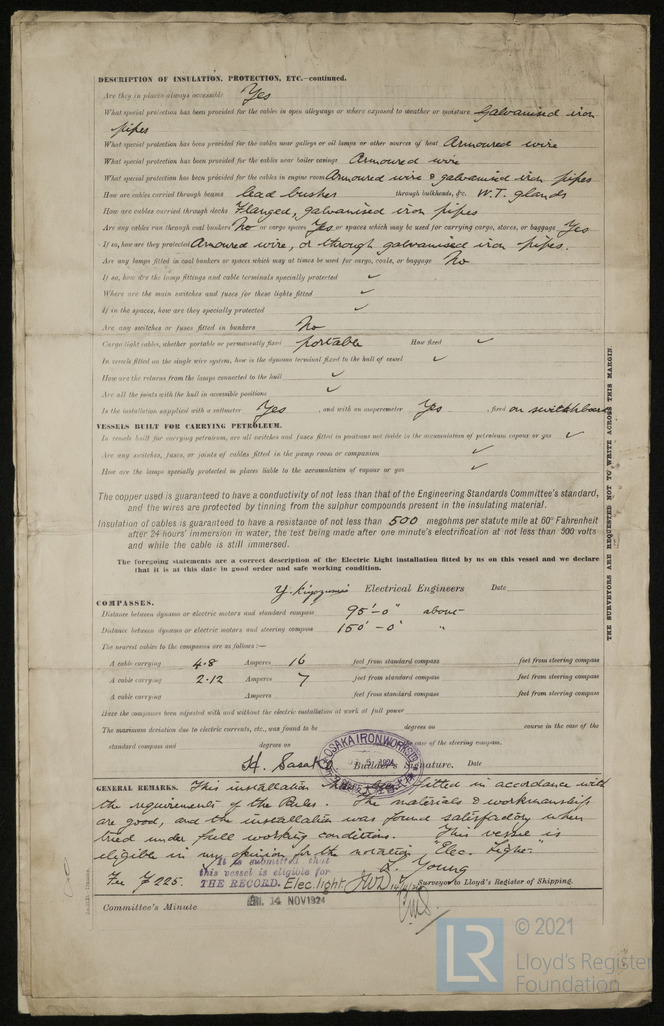 DESCRIPTION OF INSULATION, PROTECTION, ETC.—continued.
Are they in places always accessible Yes
What special protection has been provided for the cables in open alleyways or where exposed to weather or moisture Galvanised iron
pipes
What special protection has been provided for the cables near galleys or oil lamps or other sources of heat Armoured wire
What special protection has been provided for the cables near boiler casings Armoured wire
What special protection has been provided for the cables in engine room Armoured wire & galvanised iron pipes
How are cables carried through beams lead bushes through bulkheads, &c. W.T. glands
How are cables carried through decks Flanged, galvanised iron pipes
Are any cables run through coal bunkers No or cargo spaces Yes or spaces which may be used for carrying cargo, stores, or baggage Yes
If so, how are they protected Armoured wire, or through galvanised iron pipes.
Are any lamps fitted in coal bunkers or spaces which may at times be used for cargo, coals, or baggage No
If so, how are the lamp fittings and cable terminals specially protected ✓
Where are the main switches and fuses for these lights fitted ✓
If in the spaces, how are they specially protected ✓
Are any switches or fuses fitted in bunkers No
Cargo light cables, whether portable or permanently fixed portable How fixed ✓
In vessels fitted on the single wire system, how is the dynamo terminal fixed to the hull of vessel ✓
How are the returns from the lamps connected to the hull ✓
Are all the joints with the hull in accessible positions ✓
Is the installation supplied with a voltmeter Yes , and with an amperemeter Yes , fixed on switchboard
VESSELS BUILT FOR CARRYING PETROLEUM.
In vessels built for carrying petroleum, are all switches and fuses fitted in positions not liable to the accumulation of petroleum vapour or gas ✓
Are any switches, fuses, or joints of cables fitted in the pump room or companion ✓
How are the lamps specially protected in places liable to the accumulation of vapour or gas ✓
The copper used is guaranteed to have a conductivity of not less than that of the Engineering Standards Committee's standard,
and the wires are protected by tinning from the sulphur compounds present in the insulating material.
Insulation of cables is guaranteed to have a resistance of not less than 500 megohms per statute mile at 60° Fahrenheit
after 24 hours' immersion in water, the test being made after one minute's electrification at not less than 500 volts
and while the cable is still immersed.
The foregoing statements are a correct description of the Electric Light installation fitted by us on this vessel and we declare
that it is at this date in good order and safe working condition.
Electrical Engineers Date
COMPASSES.
Distance between dynamo or electric motors and standard compass 95'-0" above
Distance between dynamo or electric motors and steering compass 150'-0" "
The nearest cables to the compasses are as follows:—
A cable carrying 4.8 Amperes 16 feet from standard compass feet from steering compass
A cable carrying 2.12 Amperes 7 feet from standard compass feet from steering compass
A cable carrying Amperes feet from standard compass feet from steering compass
Have the compasses been adjusted with and without the electric installation at work at full power
The maximum deviation due to electric currents, etc., was found to be degrees on course in the case of the
standard compass and degrees on case of the steering compass.
OSAKA IRON WORKS
H. Sasaki Builder's Signature. Date
GENERAL REMARKS. This installation has been fitted in accordance with
the requirements of the Rules. The materials & workmanship
are good, and the installation was found satisfactory when
tried under full working conditions. This vessel is
eligible in my opinion for the notation "Elec. Light."
It is submitted that
this vessel is eligible for
THE RECORD. Elec. light.
Fee ¥ 225.
Young
Surveyor to Lloyd's Register of Shipping.
Committee's Minute
FRI. 14 NOV 1924
THE SURVEYORS ARE REQUESTED NOT TO WRITE ACROSS THIS MARGIN.
LR
© 2021
Lloyd's Register
Foundation